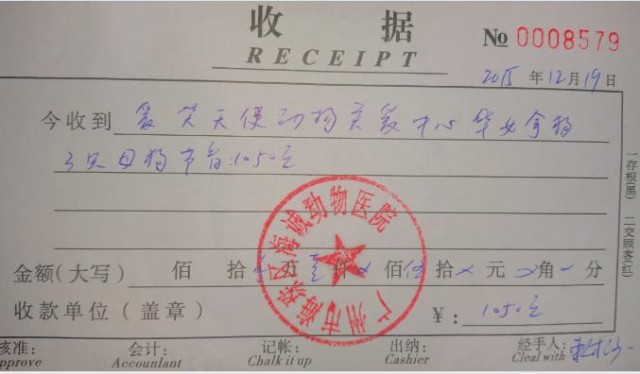 收 据
RECEIPT
№ 0008579
2015 年 12 月 19 日
今收到 爱笑天使动物关爱中心
3只母狗节育:1050元
金额(大写) 佰 拾 万 壹 仟 佰 伍 拾 元 角 分
收款单位(盖章) ¥: 1050元
广州市海珠区海诚动物医院
一存根(黑) 二交顾客(红)
核准: 会计: 记帐: 出纳: 经手人:
pprove Accountant Chalk it up Cashier Cleal with